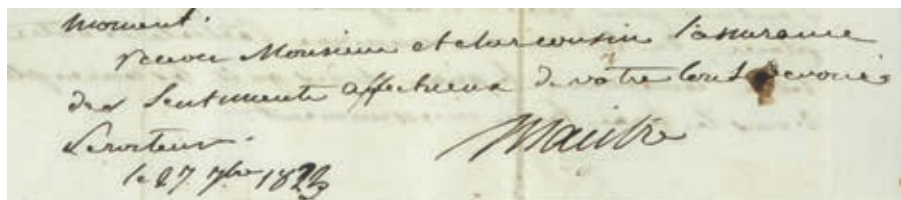 moment.
recevez Monsieur et cher cousin l'assurance
des sentiments affectueux de votre tout devoué
serviteur.
Maitre
le 27 7bre 1823